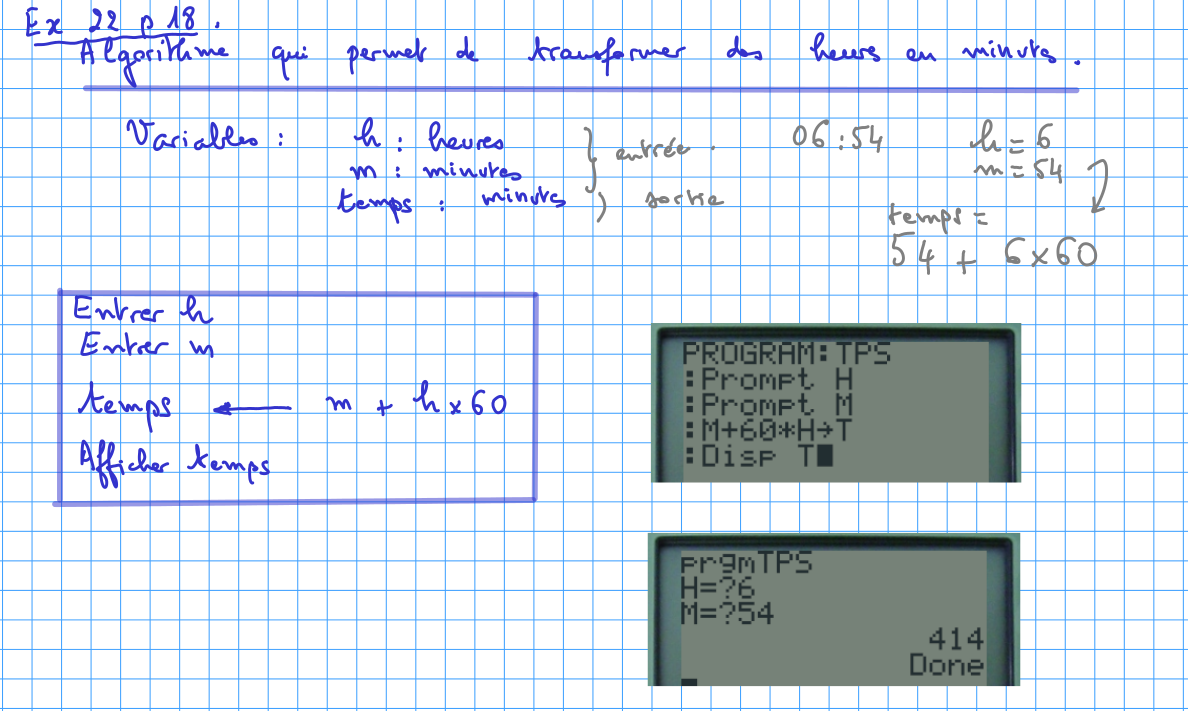 Ex 22 p 18.
Algorithme qui permet de transformer des heures en minutes.
Variables : h : heures
m : minutes
} entrée.
temps : minutes
) sortie
06:54
h = 6
m = 54
temps =
54 + 6x60
Entrer h
Entrer m
temps ← m + h x 60
Afficher temps
PROGRAM:TPS
:Prompt H
:Prompt M
:M+60*H→T
:Disp T
prgmTPS
H=?6
M=?54
414
Done